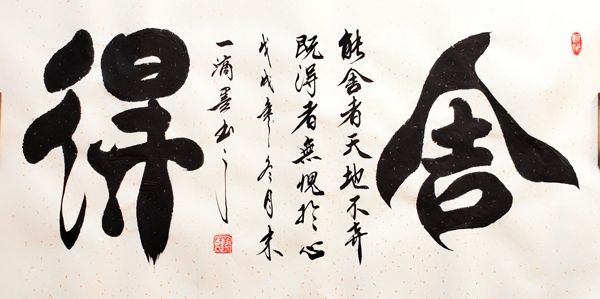 舍
能舍者天地不弃
既得者无愧於心
戊戌年冬月末
一滴墨书之
得